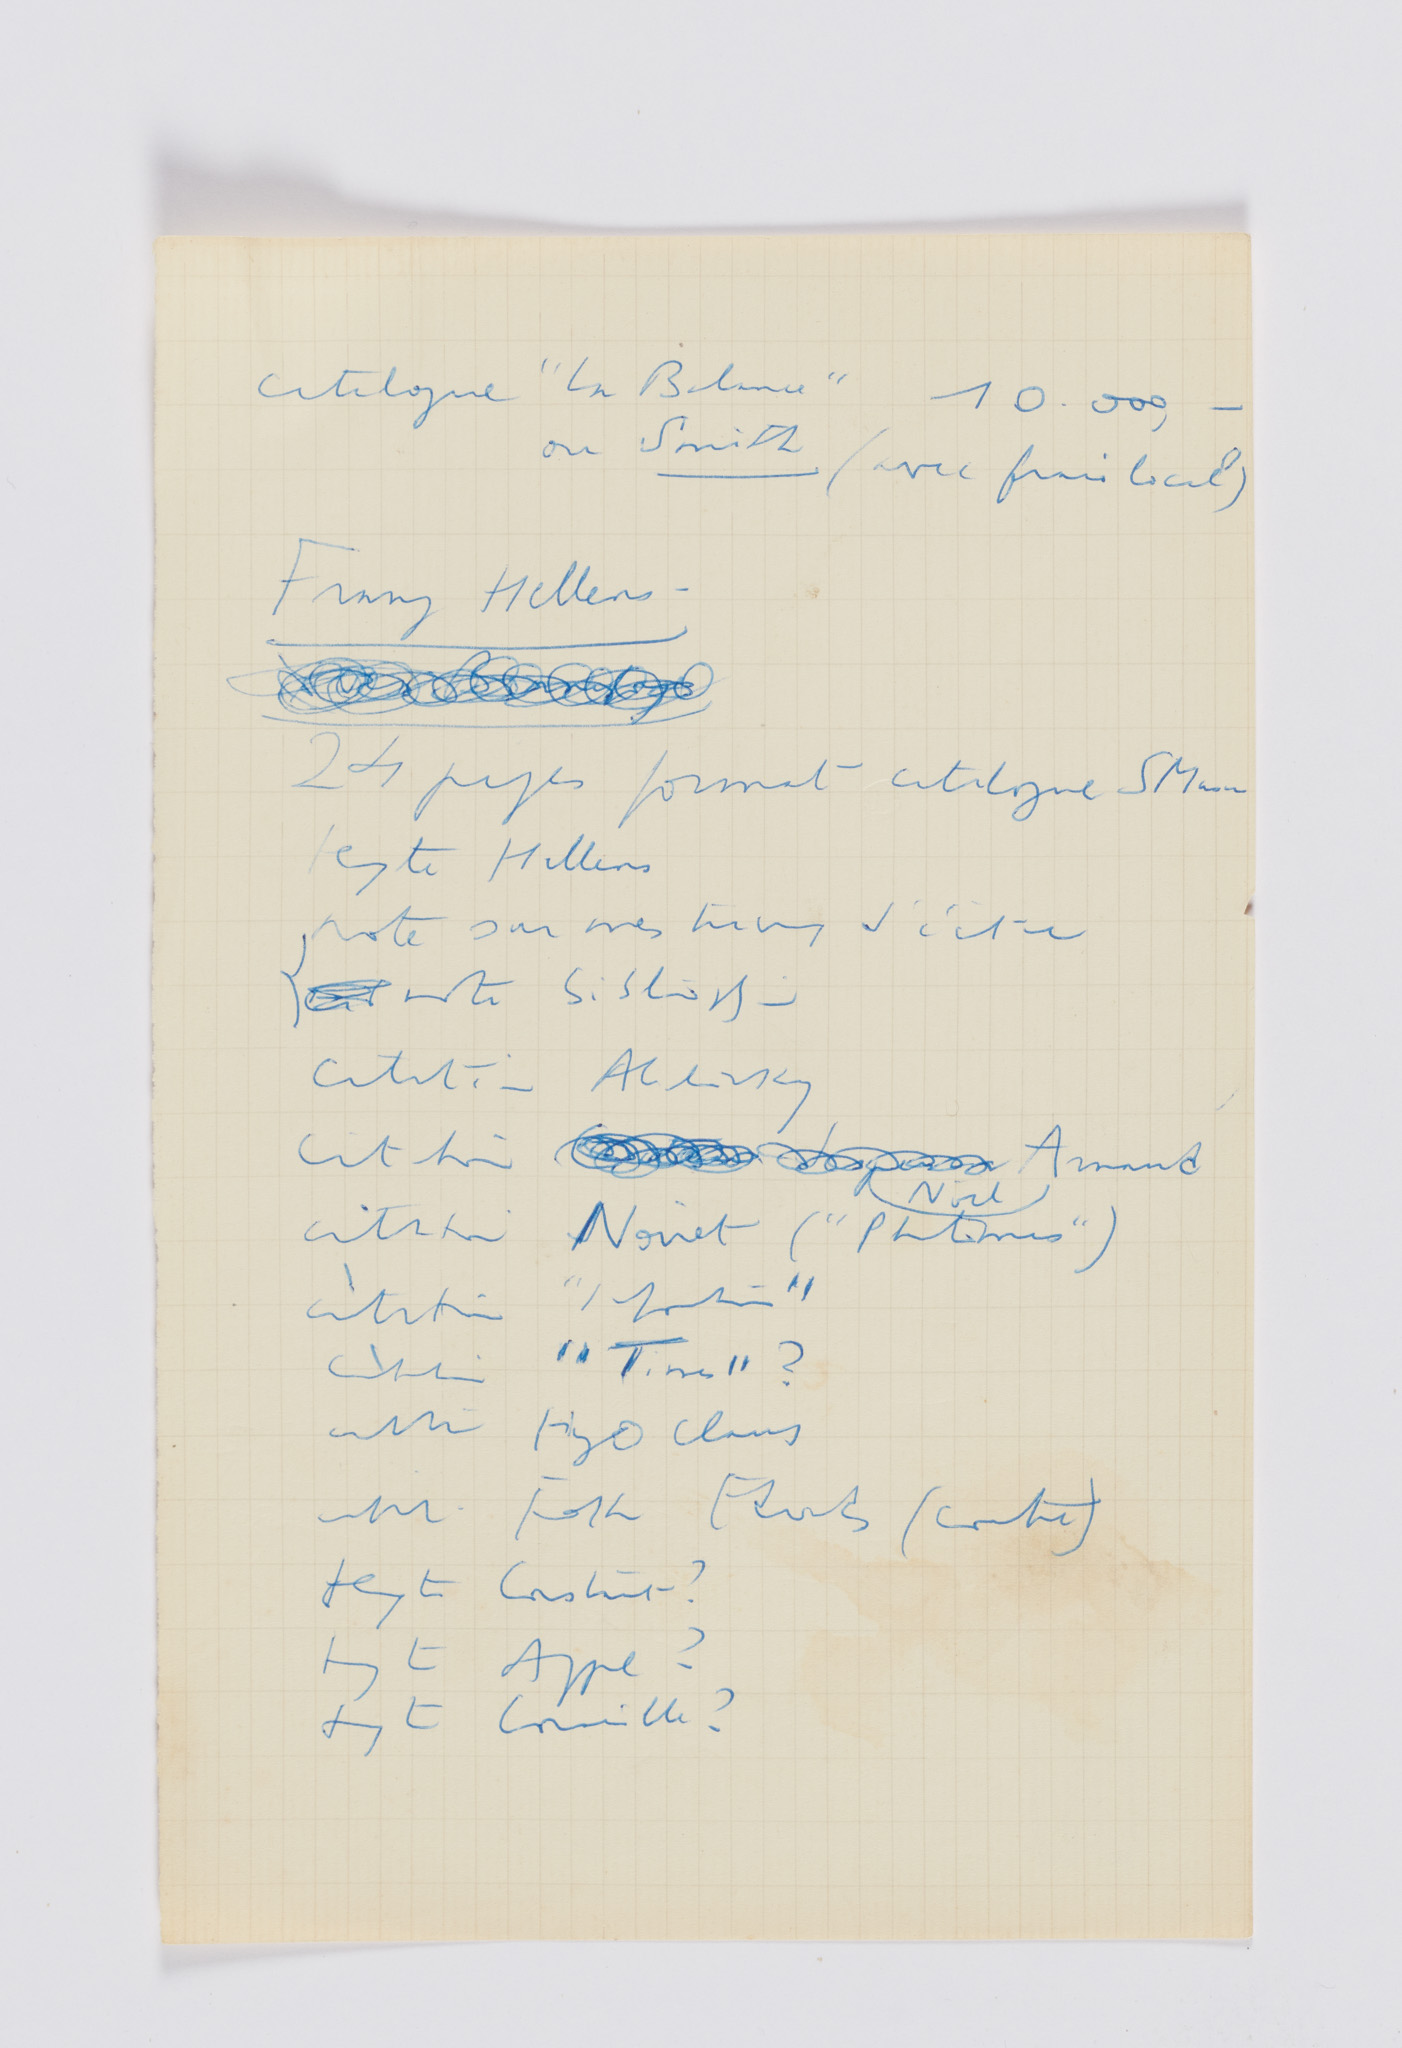 catalogue "La Balance" 10.000,-
ou Smith (avec frais local)
Franz Hellens -
24 pages format catalogue SMan
texte Hellens
note sur mes
note
citation Alechinsky
citation Arnaud
Noël
citation Noiret ("Phantomas")
citation
citation "Times"?
citation Hugo Claus
citation (contre)
texte Constant?
texte Appel?
texte Corneille?